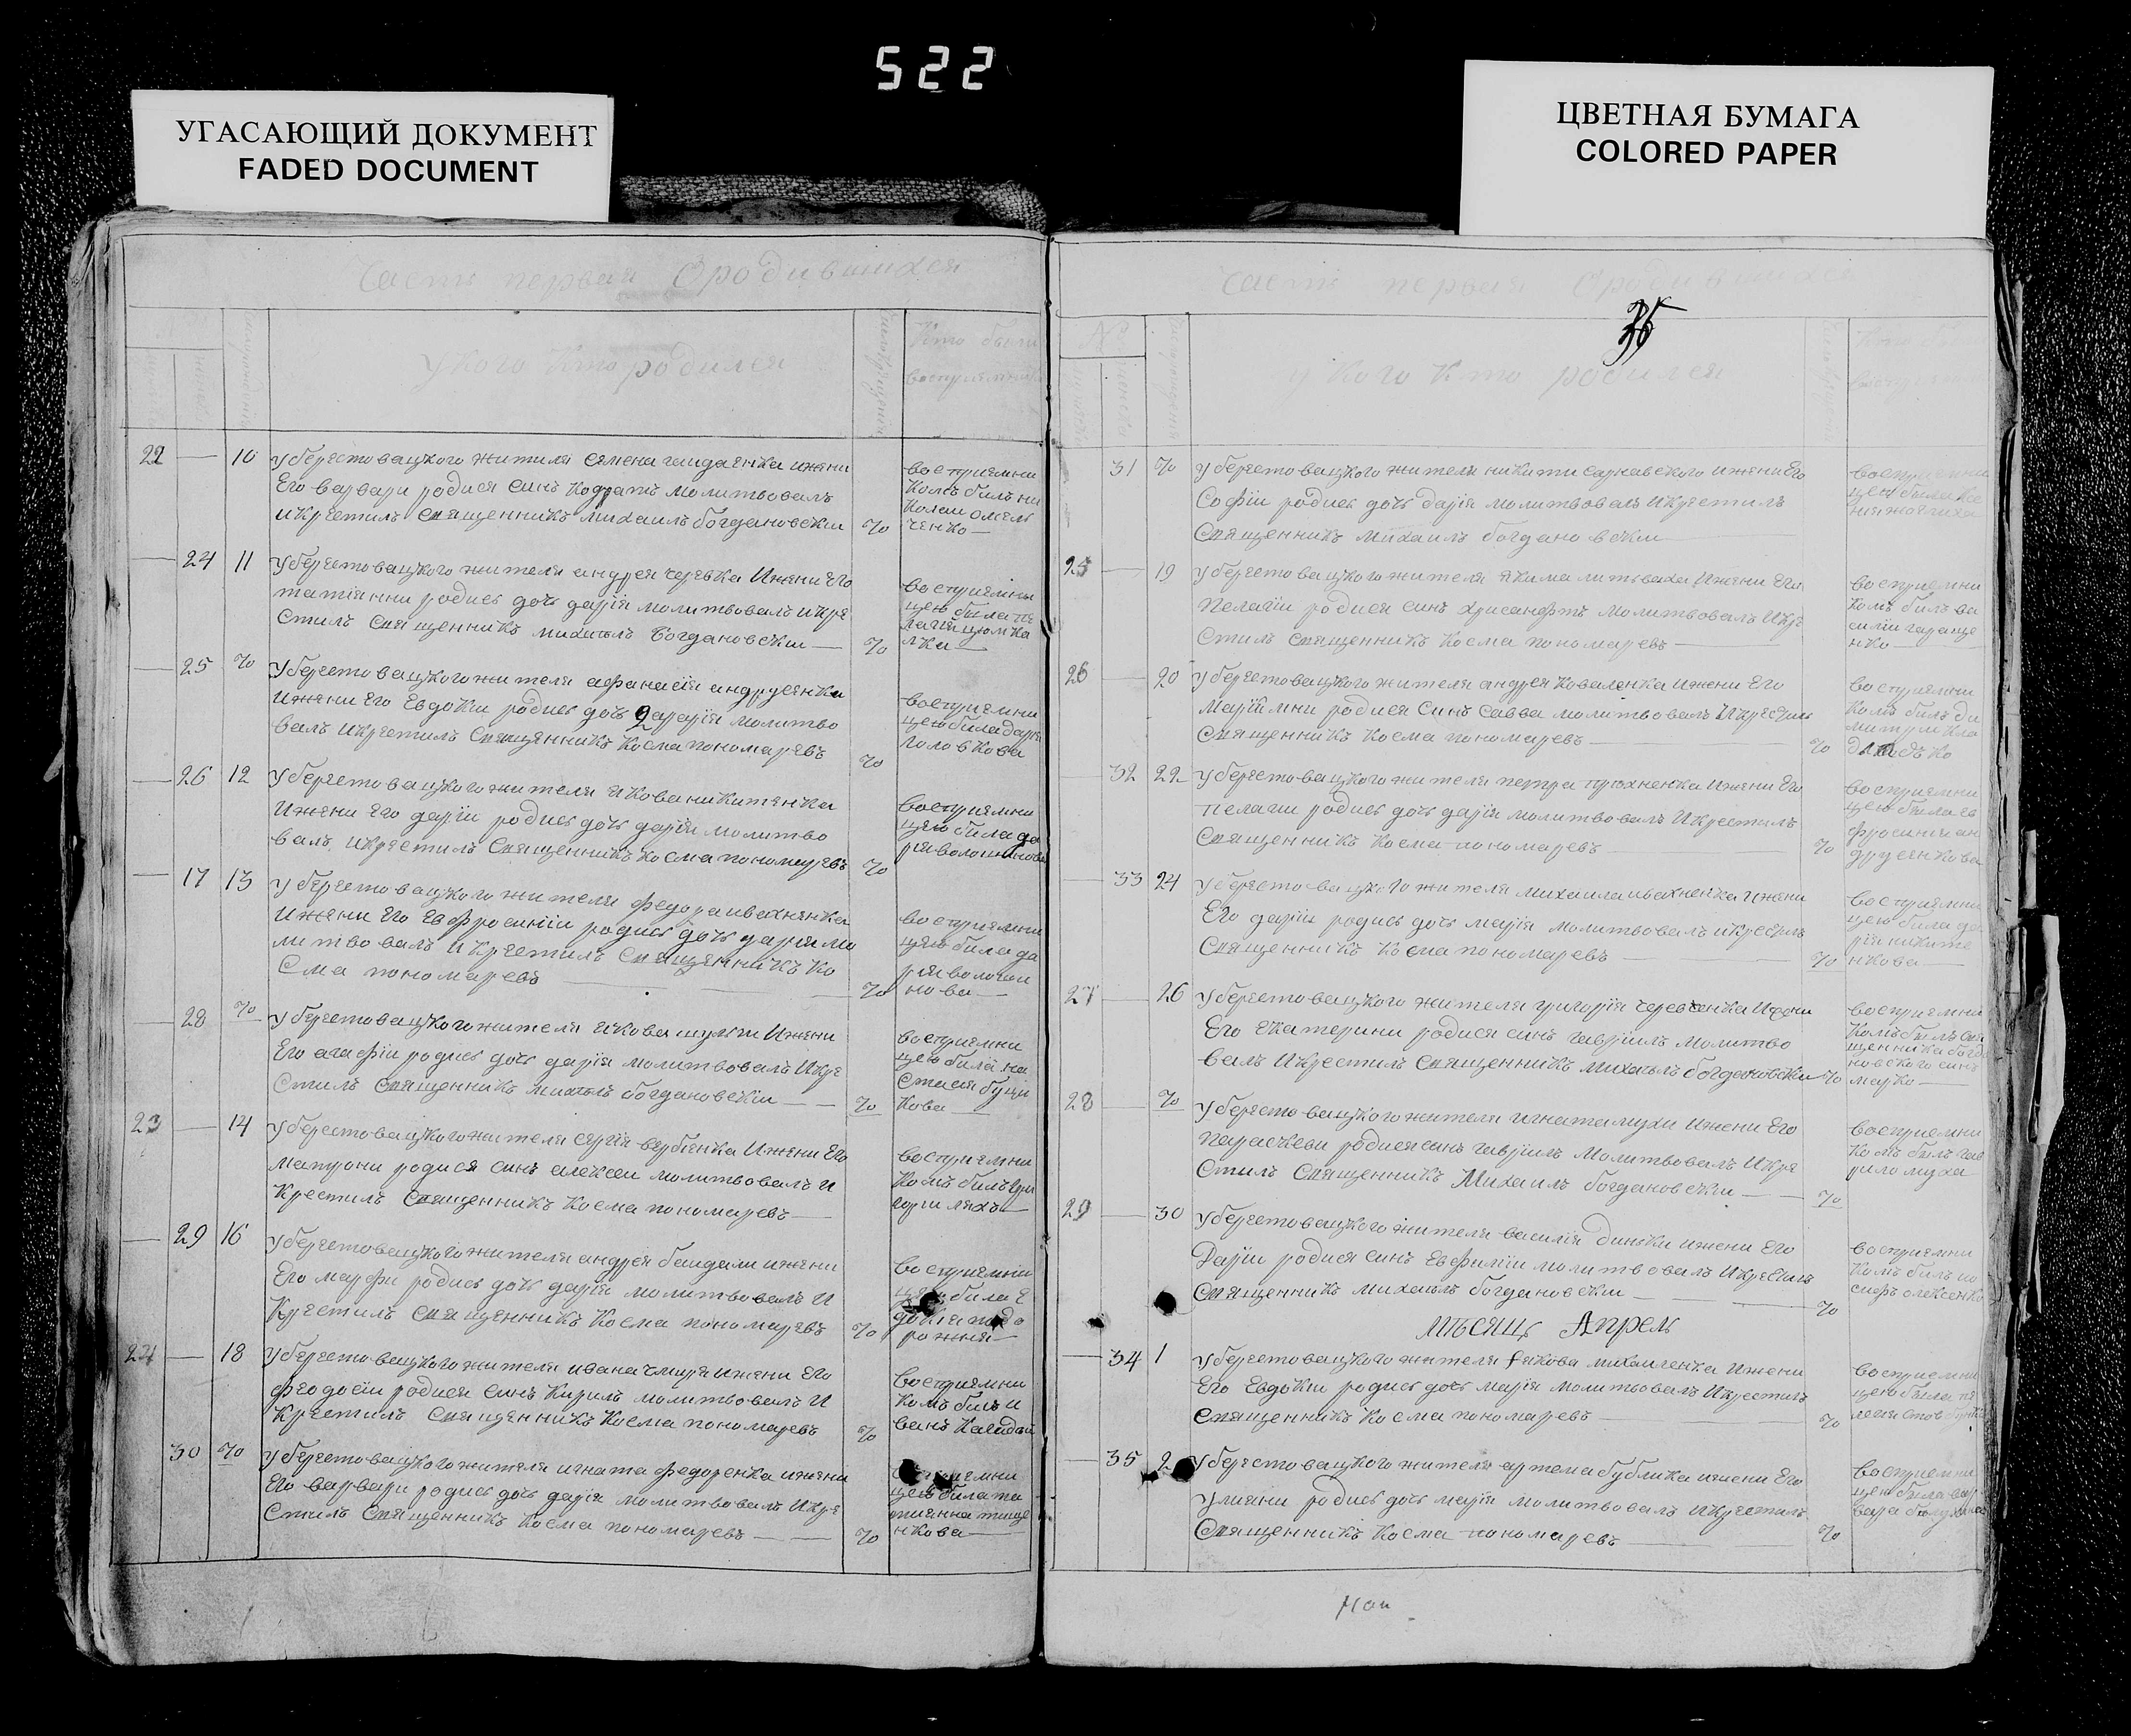 522
УГАСАЮЩИЙ ДОКУМЕНТ
FADED DOCUMENT
ЦВЕТНАЯ БУМАГА
COLORED PAPER
Часть первая О родившихся
У кого кто родился
Кто были
восприемники
22 — 10 У берестовацкого жителя семена гайдаенка ижени
Его варвари родися синъ Кодратъ молитвовалъ
икрестилъ Священникъ михаилъ богдановскіи %
восприемни
комъ билъ ни
колаи омель
ченко —
— 24 11 У берестовацкого жителя андрея черевка Ижени Его
татіянни родись дочь дарія молитвовалъ икре
стилъ Священникъ михаилъ богдановскіи — %
восприемни
цею била пе
лагія цюмка
лка —
— 25 % У берестовацкого жителя афанасія андрусенка
Ижени Его Евдокіи родись дочь дарія молитво
валъ икрестилъ Священникъ Косма пономаревъ %
восприемни
цею била дарія
головкова
— 26 12 У берестовацкого жителя якова никитенка
Ижени Его даріи родись дочь дарія молитво
валъ икрестилъ Священникъ Косма пономаревъ %
восприемни
цею била да
рія волошинова
— 17 13 У берестовацкого жителя федора ивахненка
Ижени Его Евфросиніи родись дочь дарія мо
литвовалъ икрестилъ Священникъ Ко
сма пономаревъ — %
восприемни
цею била да
рія волоши
нова —
— 28 % У берестовацкого жителя якова шульги Ижени
Его агафіи родись дочь дарія молитвовалъ Икре
стилъ Священникъ михаилъ богдановскіи — %
восприемни
цею била на
стасія буци
кова —
23 — 14 У берестовацкого жителя сергія вербіенка Ижени Его
матрони родися синъ алексеи молитвовалъ И
Крестилъ Священникъ Косма пономаревъ —
восприемни
комъ билъ гри
гори ляхъ —
— 29 16 У берестовацкого жителя андрея баидали ижени
Его марфи родись дочь дарія молитвовалъ И
Крестилъ Священникъ Косма пономаревъ %
восприемни
цею била Е
докія подо
рожня —
24 — 18 У берестовацкого жителя ивана чмиря ижени Его
феодосіи родися синъ Кирилъ молитвовалъ И
Крестилъ Священникъ Косма пономаревъ %
восприемни
комъ билъ и
ванъ
30 % У берестовацкого жителя игната федоренка ижени
Его варвари родись дочь дарія молитвовалъ Икре
стилъ Священникъ Косма пономаревъ — %
восприемни
цею била та
тиянна тище
нкова —
Часть первая О родившихся
35
У кого кто родился
31 % У берестовацкого жителя никити сарнавского ижени Его
Софіи родись дочь дарія молитвовалъ Икрестилъ
Священникъ михаилъ богдановскіи —
восприемни
цею била ксе
25 — 19 У берестовацкого жителя якима литваха Ижени Его
Пелагіи родися синъ хрисанфъ молитвовалъ Икре
стилъ Священникъ Косма пономаревъ —
восприемни
комъ билъ ва
силіи гараще
нко —
26 — 20 У берестовацкого жителя андрея коваленка ижени Его
родися синъ Савва молитвовалъ Икрестилъ
Священникъ Косма пономаревъ — %
восприемни
комъ билъ ди
митріи
— 32 22 У берестовацкого жителя петра прохненка Ижени Его
пелагіи родись дочь дарія молитвовалъ Икрестилъ
Священникъ Косма пономаревъ — %
восприемни
цею била ев
фросинія ан
друсенкова
— 33 24 У берестовацкого жителя михаила ивахненка Ижени
Его даріи родись дочь марія молитвовалъ икрестилъ
Священникъ Косма пономаревъ — %
восприемни
цею била да
рія никите
нкова —
27 — 26 У берестовацкого жителя григорія черевченка Ижени
Его Екатерини родися синъ гавріилъ молитво
валъ Икрестилъ Священникъ михаилъ богдановскіи %
восприемни
комъ билъ свя
щенника богда
новского синъ
марко —
28 — % У берестовацкого жителя игната мухи Ижени Его
Парасчкеви родися синъ гавріилъ молитвовалъ Икре
стилъ Священникъ Михаилъ богдановскіи — %
восприемни
комъ билъ гав
рило муха
29 — 30 У берестовацкого жителя василія диньки ижени Его
Даріи родися синъ Евфиміи молитвовалъ Икрестилъ
Священникъ михаилъ богдановскіи — %
восприемни
комъ билъ ио
сифъ олексенко
мѣсяцъ Апрель
— 34 1 У берестовацкого жителя якова михаиленка Ижени
Его Евдокіи родись дочь марія молитвовалъ Икрестилъ
Священникъ Косма пономаревъ %
восприемни
цею била пе
лагия
— 35 2 У берестовацкого жителя артема бублика ижени Его
Улияни родись дочь марія молитвовалъ Икрестилъ
Священникъ Косма пономаревъ — %
восприемни
цею била вар
вара